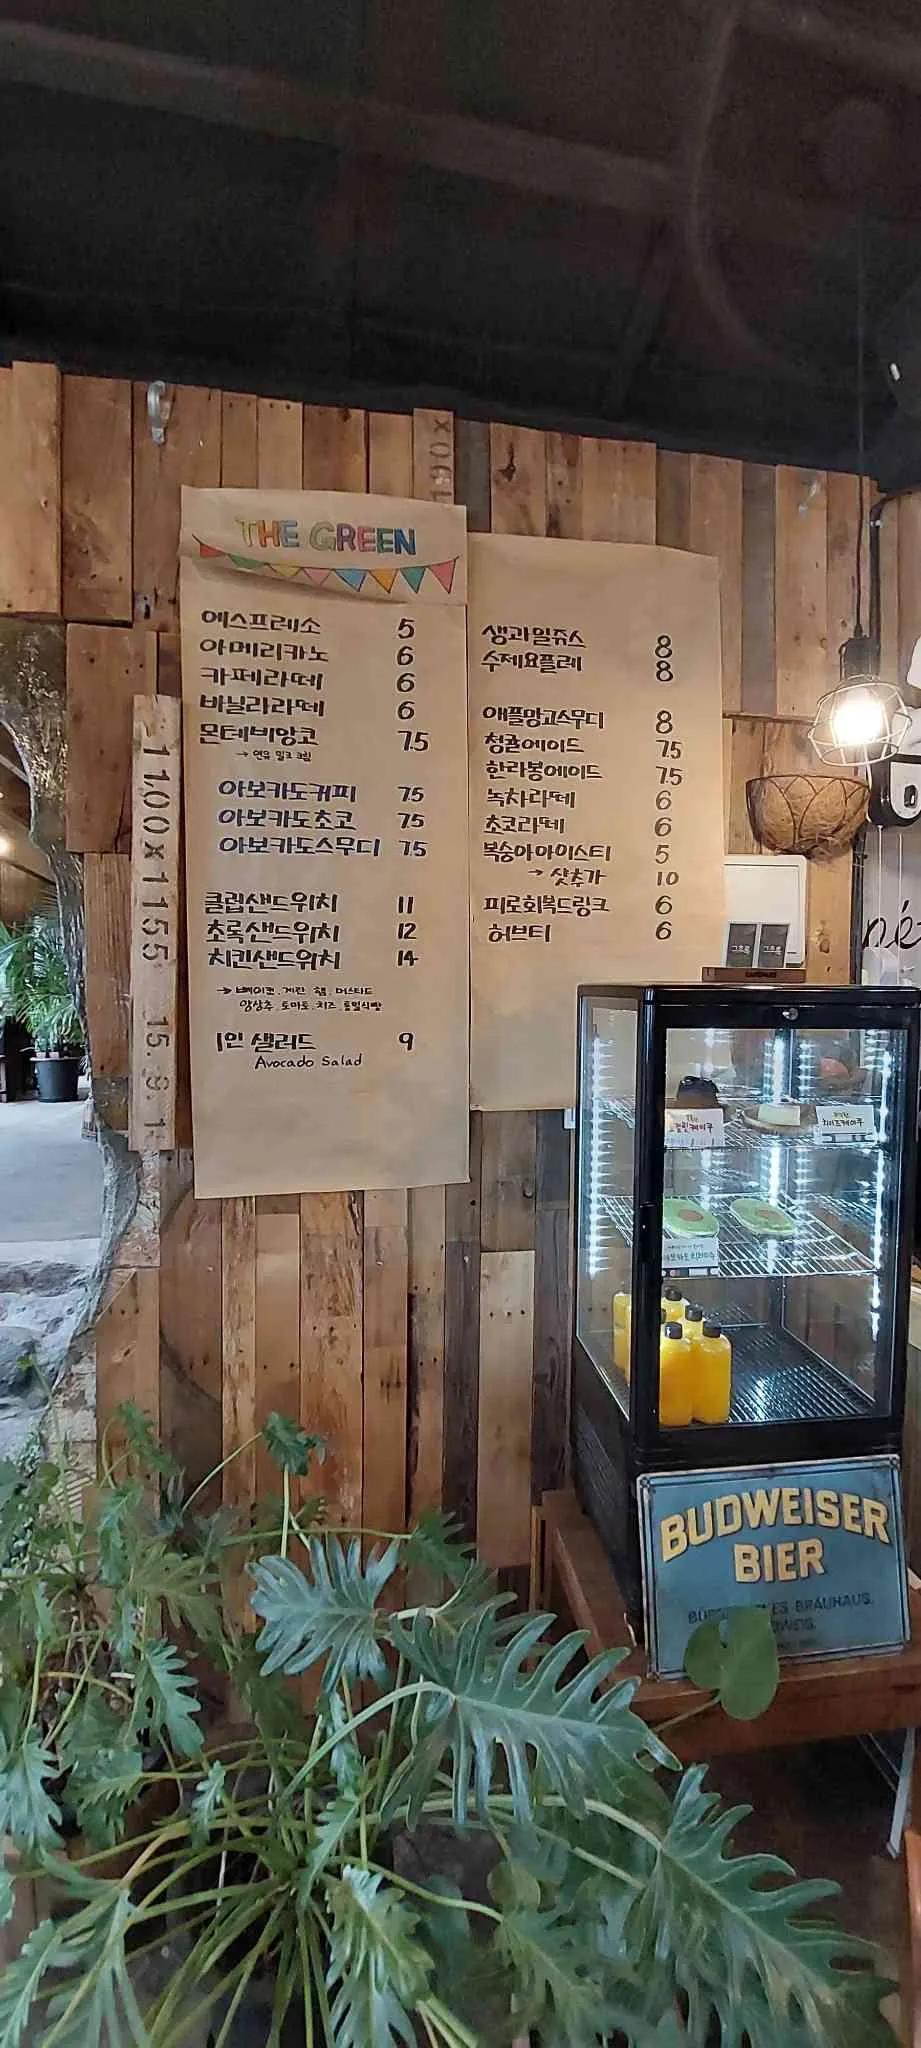 THE GREEN
에스프레소 5
아메리카노 6
카페라떼 6
바닐라라떼 6
몬테비앙코 7.5
→ 연유 밀크 크림
아보카도커피 7.5
아보카도초코 7.5
아보카도스무디 7.5
클럽샌드위치 11
초록샌드위치 12
치킨샌드위치 14
→ 베이컨. 계란. 햄. 머스타드
양상추. 토마토. 치즈. 통밀식빵
1인 샐러드 9
Avocado Salad
생과일쥬스 8
수제요플레 8
애플망고스무디 8
청귤에이드 7.5
한라봉에이드 7.5
녹차라떼 6
초코라떼 6
복숭아아이스티 5
→ 샷추가 1.0
피로회복드링크 6
허브티 6
1100 x 155 15.8.1
né
치즈케이크
BUDWEISER
BIER
BRAUHAUS.